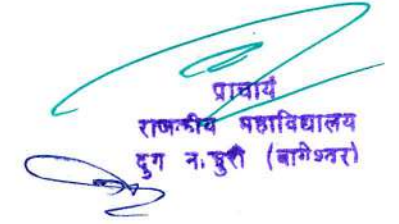 प्राचार्य
राजकीय महाविद्यालय
दुग न.कुरी (बागेश्वर)